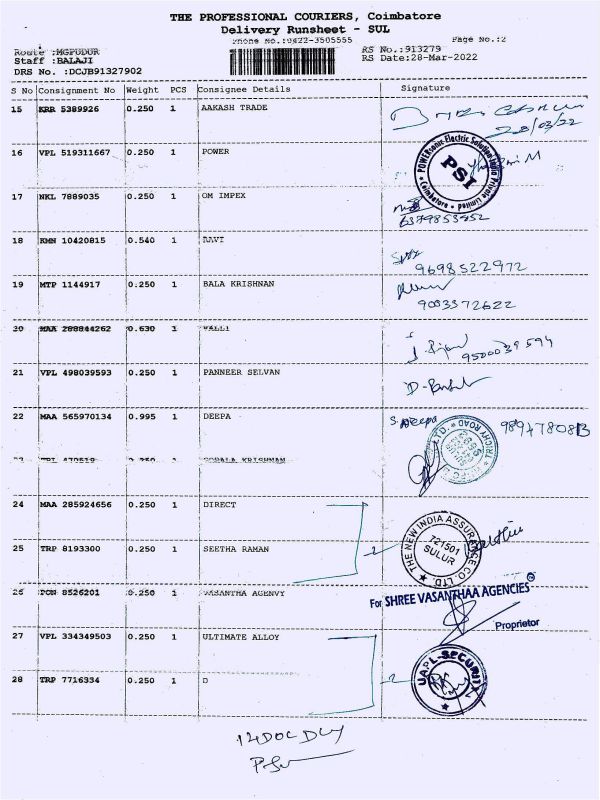 THE PROFESSIONAL COURIERS, Coimbatore
Delivery Runsheet - SUL
Phone No.:0422-3505555 Page No.:2
Route :MGPUDUR RS No.:913279
Staff :BALAJI RS Date:28-Mar-2022
DRS No. :DCJB91327902
S No Consignment No Weight PCS Consignee Details Signature
15 KRR 5389926 0.250 1 AAKASH TRADE
28/03/22
16 VPL 519311667 0.250 1 POWER
POWERsonic Electric Solution India Private Limited Coimbatore PSI
17 NKL 7889035 0.250 1 OM IMPEX
6379853952
18 KMN 10420815 0.540 1 RAVI
9698522972
19 MTP 1144917 0.250 1 BALA KRISHNAN
9003372622
20 MAA 288844262 0.630 1 VALLI
9500039594
21 VPL 498039593 0.250 1 PANNEER SELVAN
22 MAA 565970134 0.995 1 DEEPA
S Deepa
TRICHY ROAD
23 0.250 1 GOPALA KRISHNAN
24 MAA 285924656 0.250 1 DIRECT
THE NEW INDIA ASSURANCE CO. LTD. 721501 SULUR
25 TRP 8193300 0.250 1 SEETHA RAMAN
2
26 PON 8526201 0.250 1 VASANTHA AGENVY
For SHREE VASANTHAA AGENCIES
Proprietor
27 VPL 334349503 0.250 1 ULTIMATE ALLOY
UAPL-SECURITY
28 TRP 7716334 0.250 1 D
2
14 DOC DLY